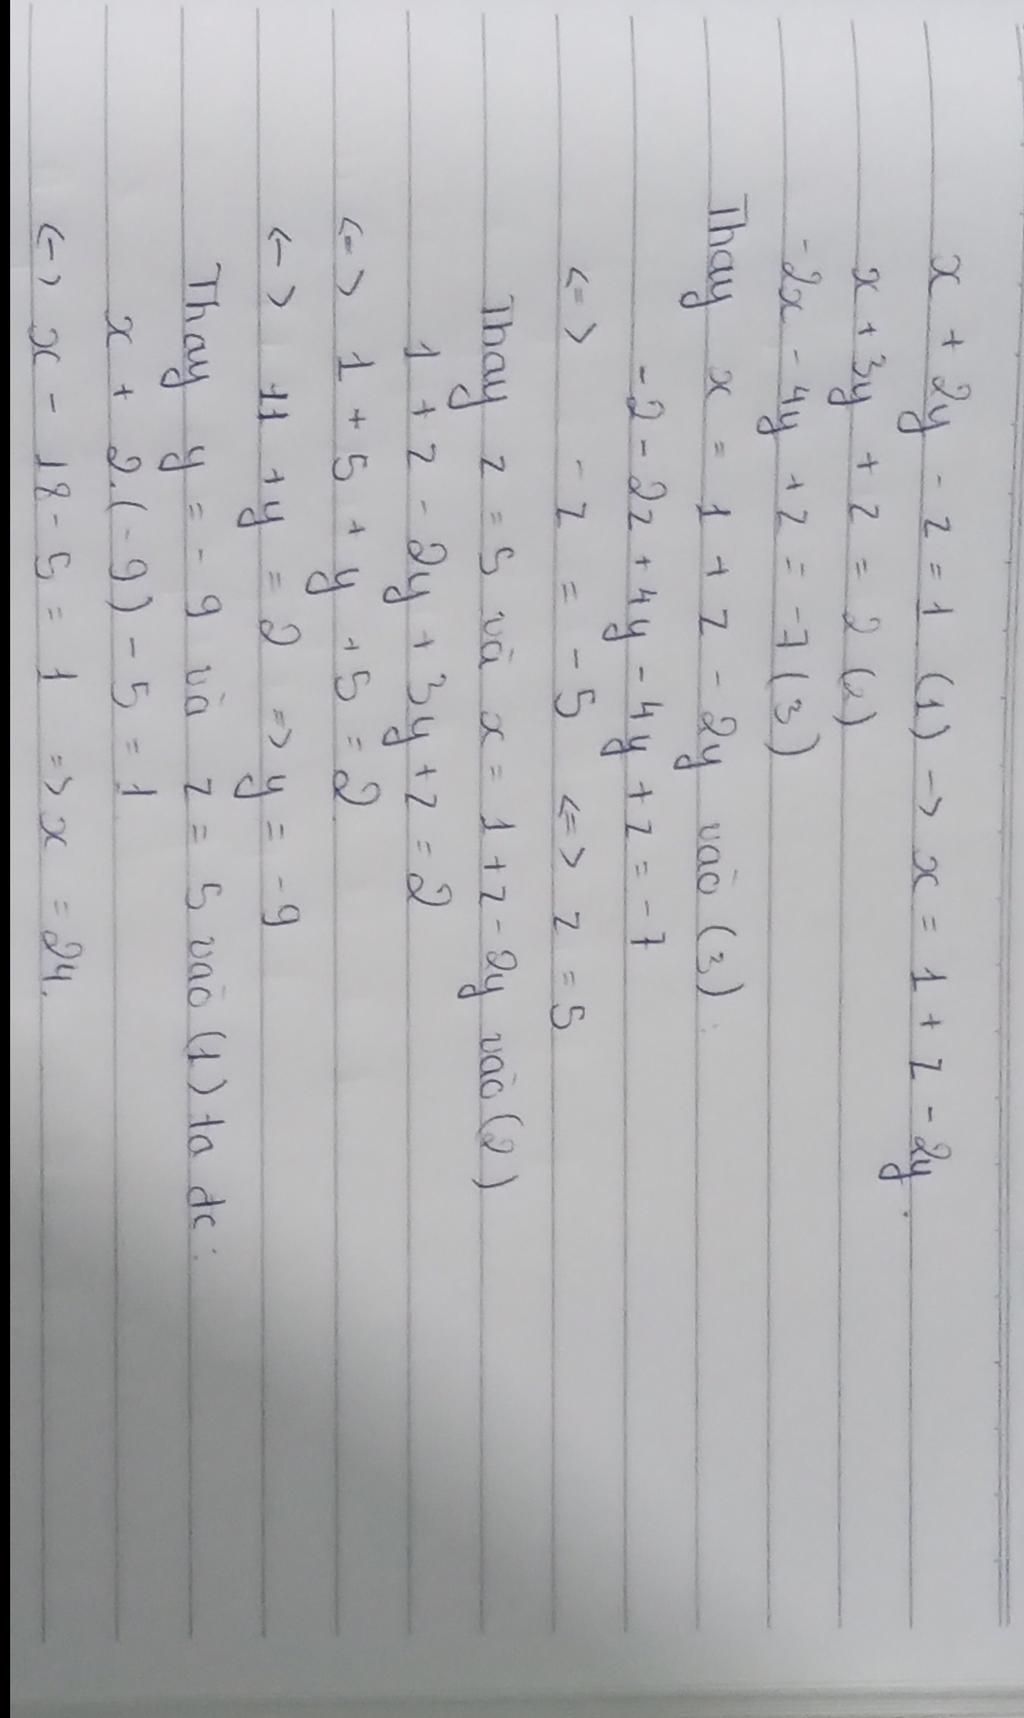 x + 2y - z = 1 (1) -> x = 1 + z - 2y.
x + 3y + z = 2 (2)
-2x - 4y + z = -7 (3)
Thay x = 1 + z - 2y vào (3):
-2 - 2z + 4y - 4y + z = -7
<=> - z = -5 <=> z = 5
Thay z = 5 và x = 1 + z - 2y vào (2)
1 + z - 2y + 3y + z = 2
<=> 1 + 5 + y + 5 = 2
<-> 11 + y = 2 => y = -9
Thay y = -9 và z = 5 vào (1) ta dc:
x + 2.(-9) - 5 = 1
<-> x - 18 - 5 = 1 => x = 24.